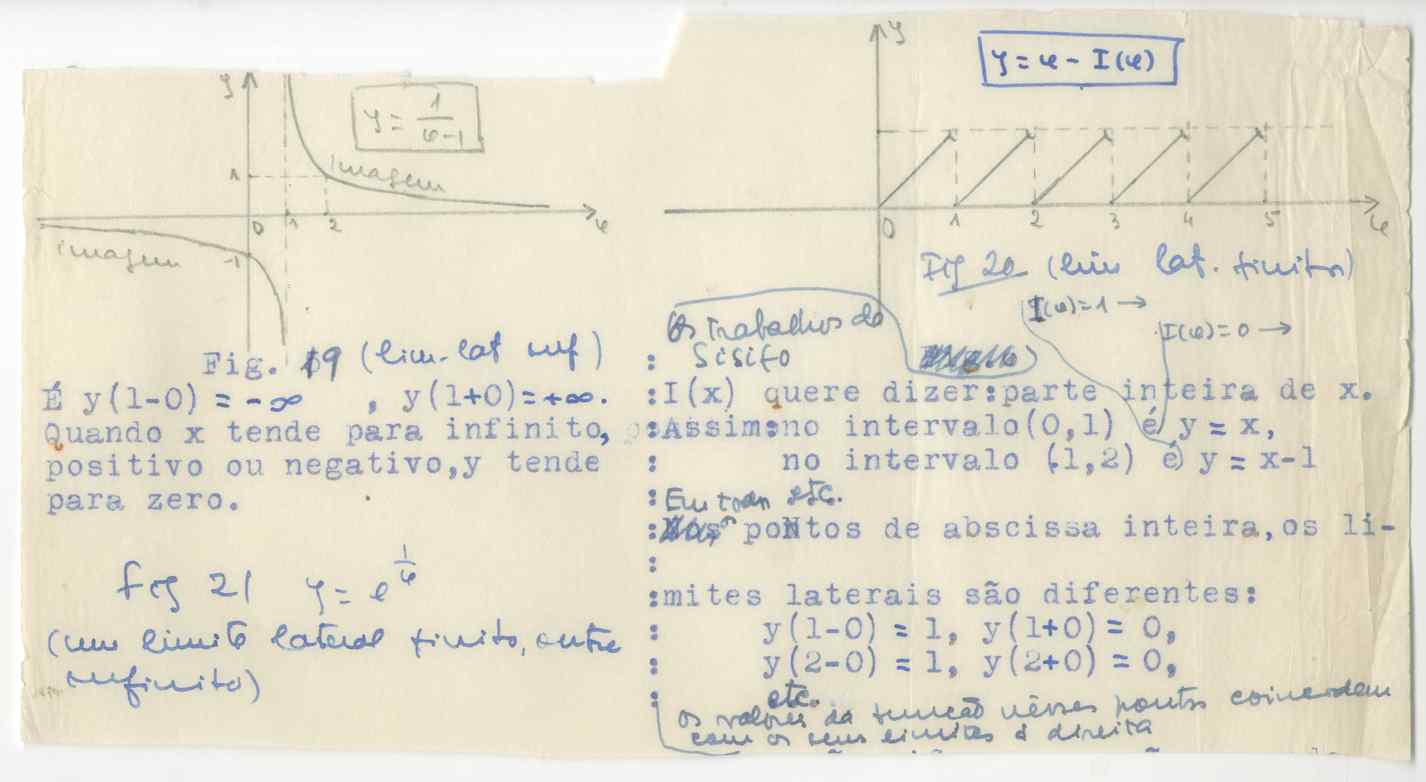 y
y = 1/(x-1)
1
imagem
0 1 2 x
imagem
-1
Fig. 19 (lim. lat inf)
É y(1-0) = -∞ , y(1+0)=+∞.
Quando x tende para infinito,
positivo ou negativo,y tende
para zero.
fig 21 y = e^(1/x)
(um limite lateral finito, outro
infinito)
y
y = x - I(x)
0 1 2 3 4 5 x
Fig 20 (lim lat. finitos)
I(x)=1 →
I(x)=0 →
Os trabalhos de
: Sisifo
:I(x) quere dizer:parte inteira de x.
:Assim:no intervalo(0,1) é y = x,
: no intervalo (1,2) é y = x-1
: Em todos etc.
: os pontos de abscissa inteira,os li-
:
:mites laterais são diferentes:
: y(1-0) = 1, y(1+0) = 0,
: y(2-0) = 1, y(2+0) = 0,
: etc.
os valores da função nêsses pontos coincidem
com os seus limites à direita